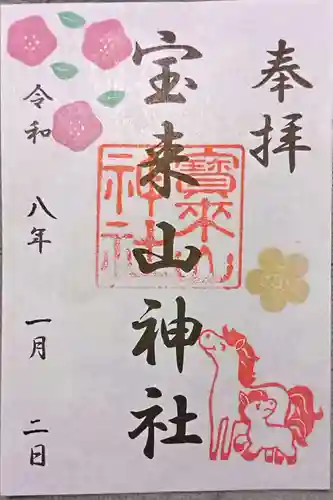 奉拝
宝来山神社
寶来山
神社
令和 八年 一月 二日